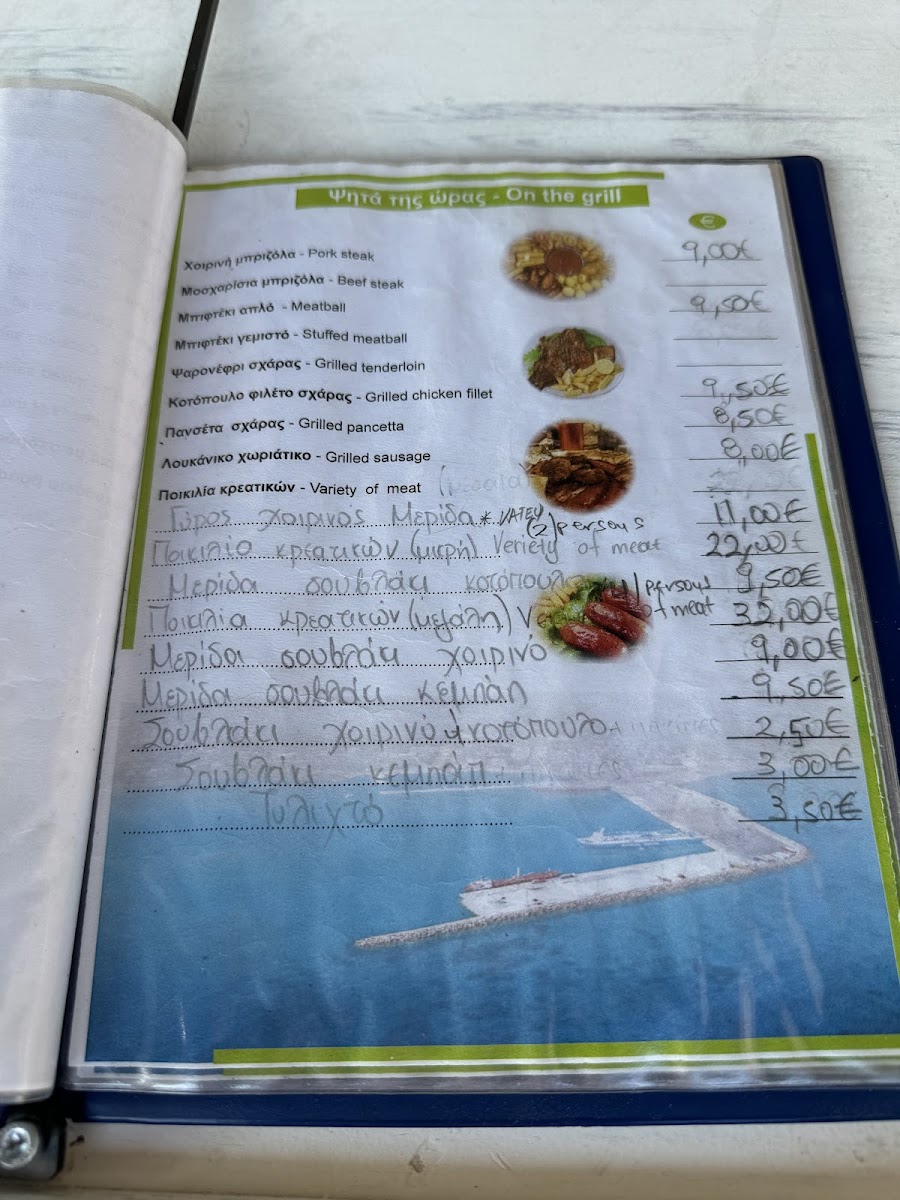 Ψητά της ώρας - On the grill
€
Χοιρινή μπριζόλα - Pork steak 9,00€
Μοσχαρίσια μπριζόλα - Beef steak
Μπιφτέκι απλό - Meatball 9,50€
Μπιφτέκι γεμιστό - Stuffed meatball
Ψαρονέφρι σχάρας - Grilled tenderloin
Κοτόπουλο φιλέτο σχάρας - Grilled chicken fillet 9,50€
Πανσέτα σχάρας - Grilled pancetta 8,50€
Λουκάνικο χωριάτικο - Grilled sausage 8,00€
Ποικιλία κρεατικών - Variety of meat
Γύρος χοιρινός Μερίδα 11,00€
(2) persons
Ποικιλία κρεατικών (μικρή) Veriety of meat 22,00€
Μερίδα σουβλάκι κοτόπουλο 9,50€
persons
Ποικιλία κρεατικών (μεγάλη) of meat 32,00€
Μερίδα σουβλάκι χοιρινό 9,00€
Μερίδα σουβλάκι κεμπάπ 9,50€
Σουβλάκι χοιρινό ή κοτόπουλο 2,50€
Σουβλάκι κεμπάπ 3,00€
Τυλιχτό 3,50€